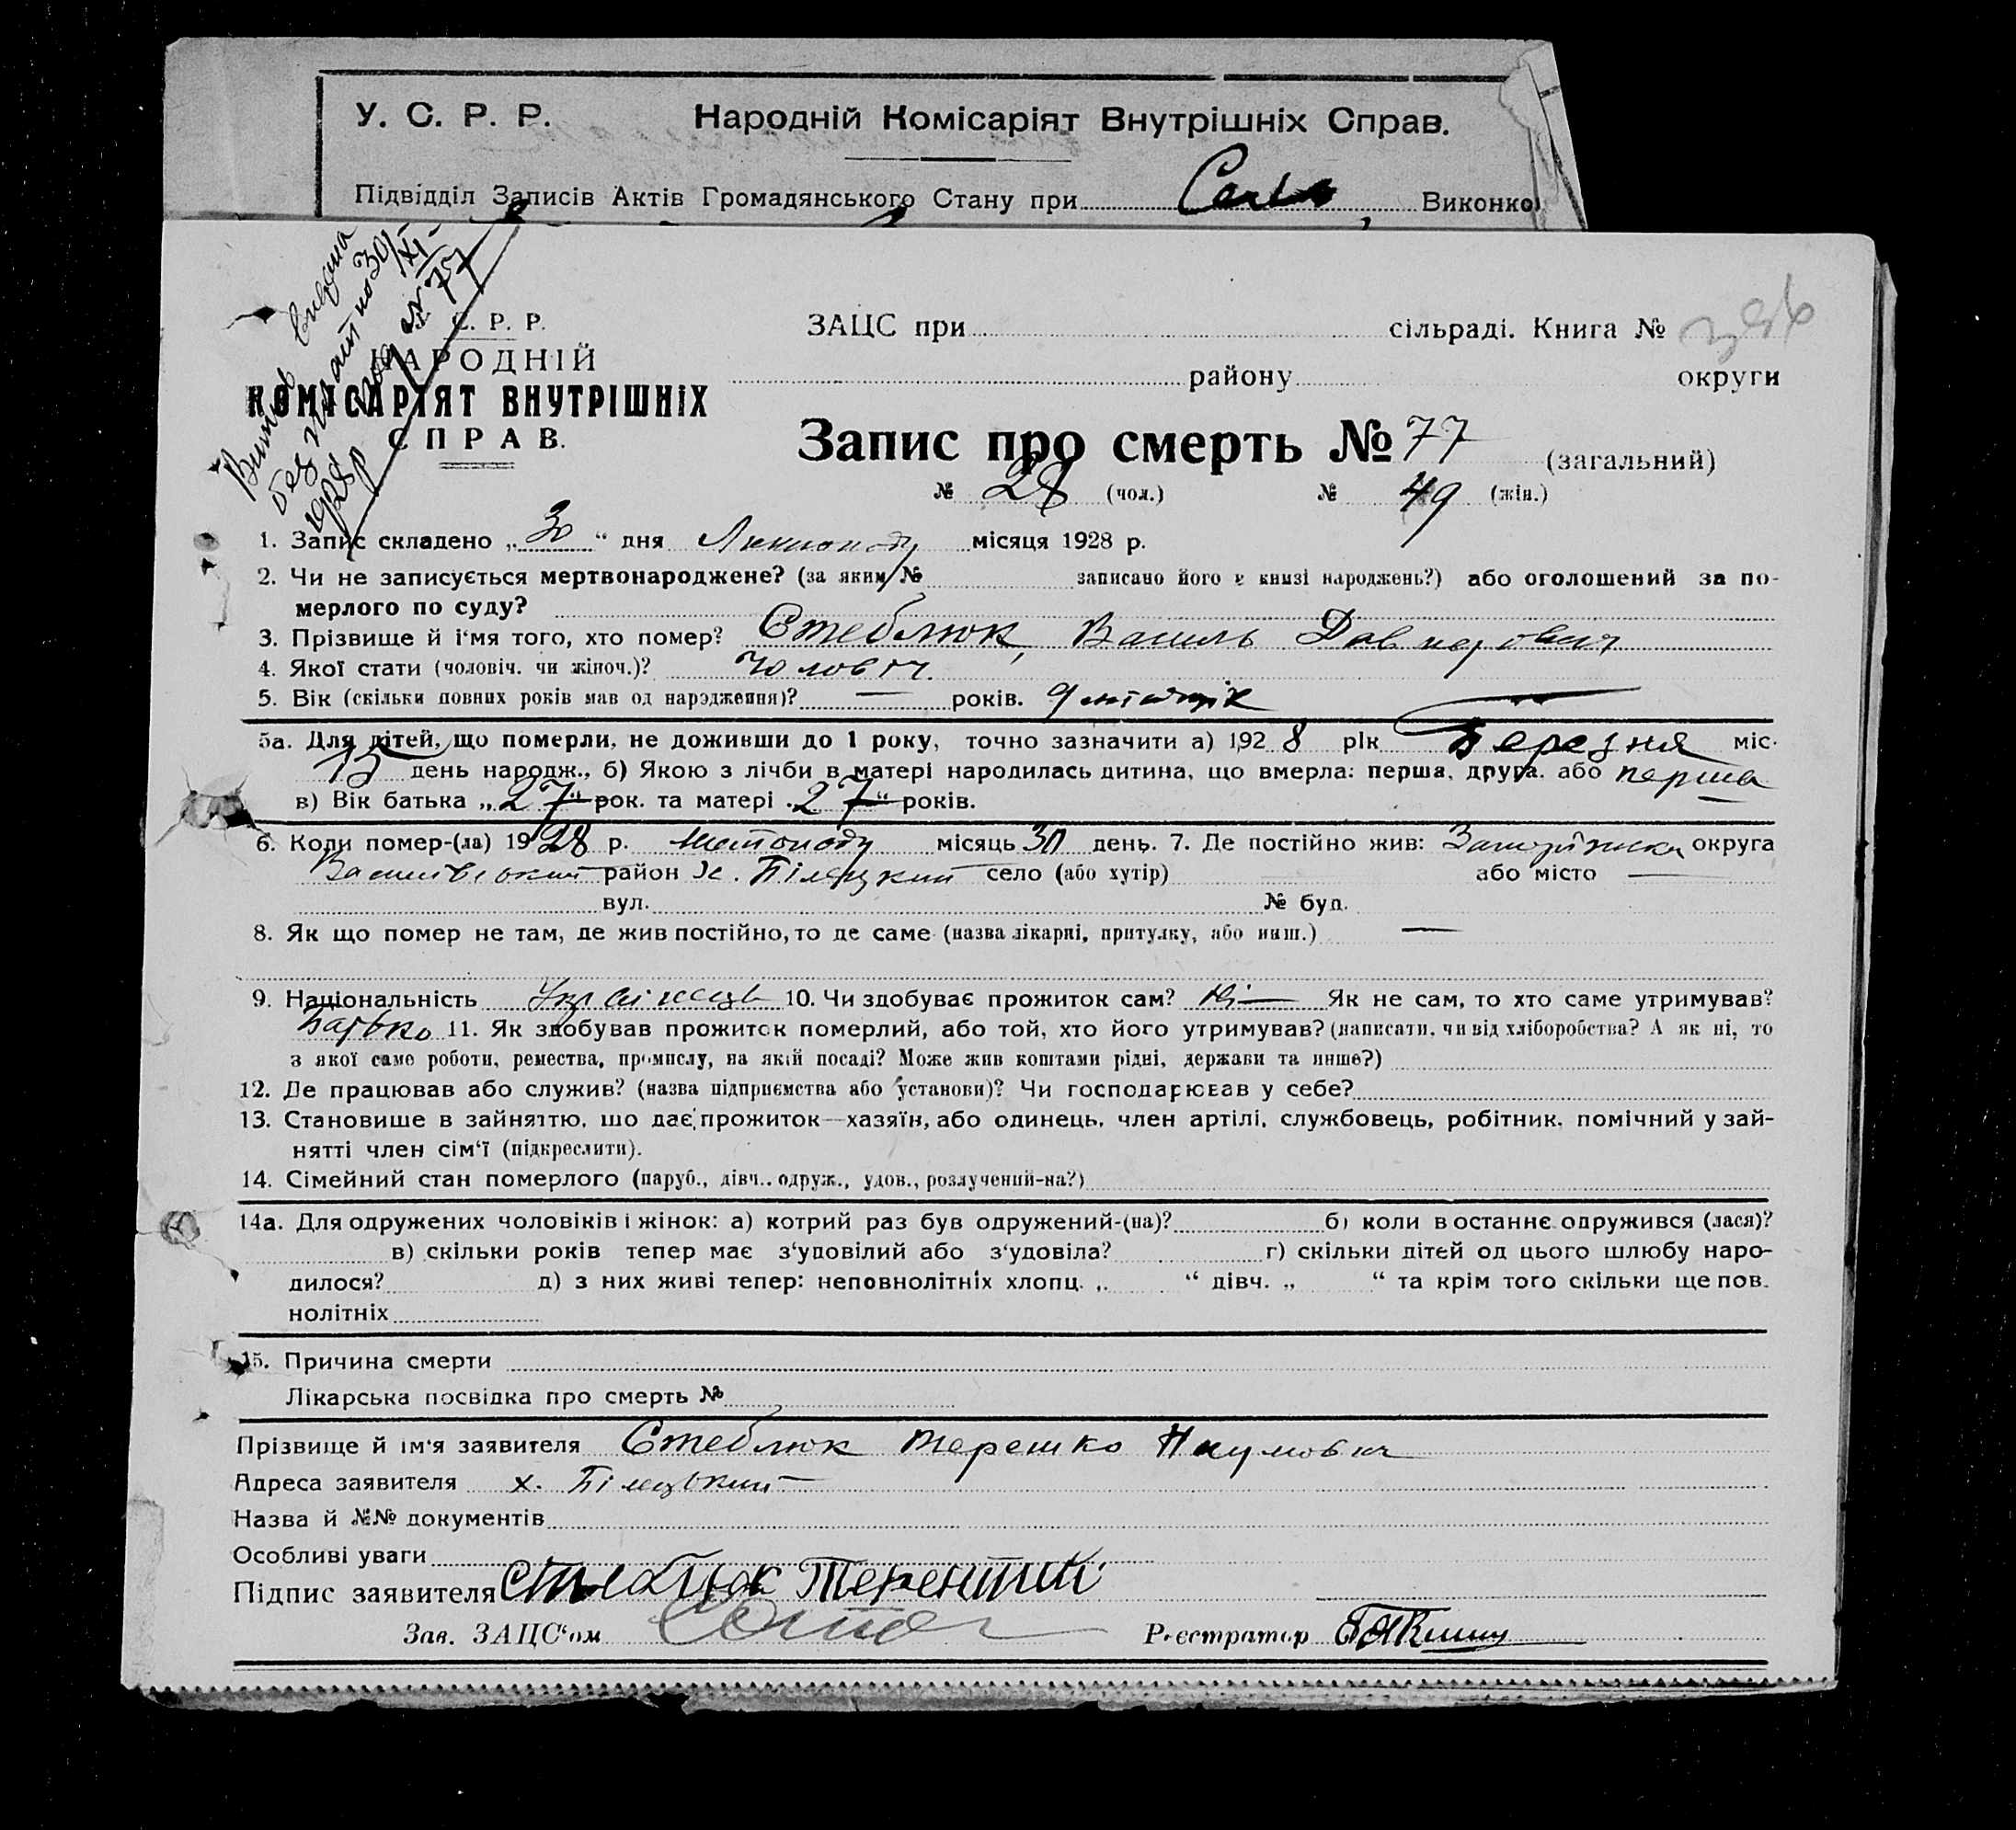 У. С. Р. Р. Народній Комісаріят Внутрішніх Справ.
Підвідділ Записів Актів Громадянського Стану при Виконко
Витяг видана
без плат но 30/XI-
1928 р № 77
С. Р. Р.
НАРОДНІЙ
КОМІСАРІЯТ ВНУТРІШНІХ
СПРАВ.
ЗАЦС при сільраді. Книга №
району округи
Запис про смерть № 77 (загальний)
№ 28 (чол.) № 49 (жін.)
1. Запис складено „30“ дня Листопаду місяця 1928 р.
2. Чи не записується мертвонароджене? (за яким № записано його в книзі народжень?) або оголошений за по-
мерлого по суду?
3. Прізвище й і'мя того, хто помер? Стеблюк, Василь
4. Якої стати (чоловіч. чи жіноч.)? чоловіч.
5. Вік (скільки повних років мав од народження)? — років.
5а. Для дітей, що померли, не доживши до 1 року, точно зазначити а) 1928 рік Березня міс.
15 день народж., б) Якою з лічби в матері народилась дитина, що вмерла: перша, друга. або перша
в) Вік батька „27“ рок. та матері „27“ років.
6. Коли помер-(ла) 1928 р. листопаду місяць 30 день. 7. Де постійно жив: Запоріжська округа
Василівський район х. Білецький село (або хутір) або місто —
вул. № буд.
8. Як що помер не там, де жив постійно, то де саме (назва лікарні, притулку, або инш.) —
9. Національність Українець 10. Чи здобуває прожиток сам? ні — Як не сам, то хто саме утримував?
Батько 11. Як здобував прожиток померлий, або той, хто його утримував? (написати, чи від хліборобства? А як ні, то
з якої саме роботи, ремества, промислу, на якій посаді? Може жив коштами рідні, держави та инше?)
12. Де працював або служив? (назва підприємства або установи)? Чи господарював у себе?
13. Становище в зайняттю, що дає прожиток—хазяїн, або одинець, член артілі, службовець, робітник, помічний у зай-
нятті член сім'ї (підкреслити).
14. Сімейний стан померлого (паруб., дівч., одруж., удов., розлучений-на?)
14а. Для одружених чоловіків і жінок: а) котрий раз був одружений-(на)? б) коли в останнє одружився (лася)?
в) скільки років тепер має з'удовілий або з'удовіла? г) скільки дітей од цього шлюбу наро-
дилося? д) з них живі тепер: неповнолітніх хлопц. „ “ дівч. „ “ та крім того скільки ще пов-
нолітніх
15. Причина смерти
Лікарська посвідка про смерть №
Прізвище й ім'я заявителя Стеблюк Терешко Наумович
Адреса заявителя х. Білецький
Назва й №№ документів
Особливі уваги
Підпис заявителя Стеблюк Терентий
Зав. ЗАЦС'ом
Реєстратор